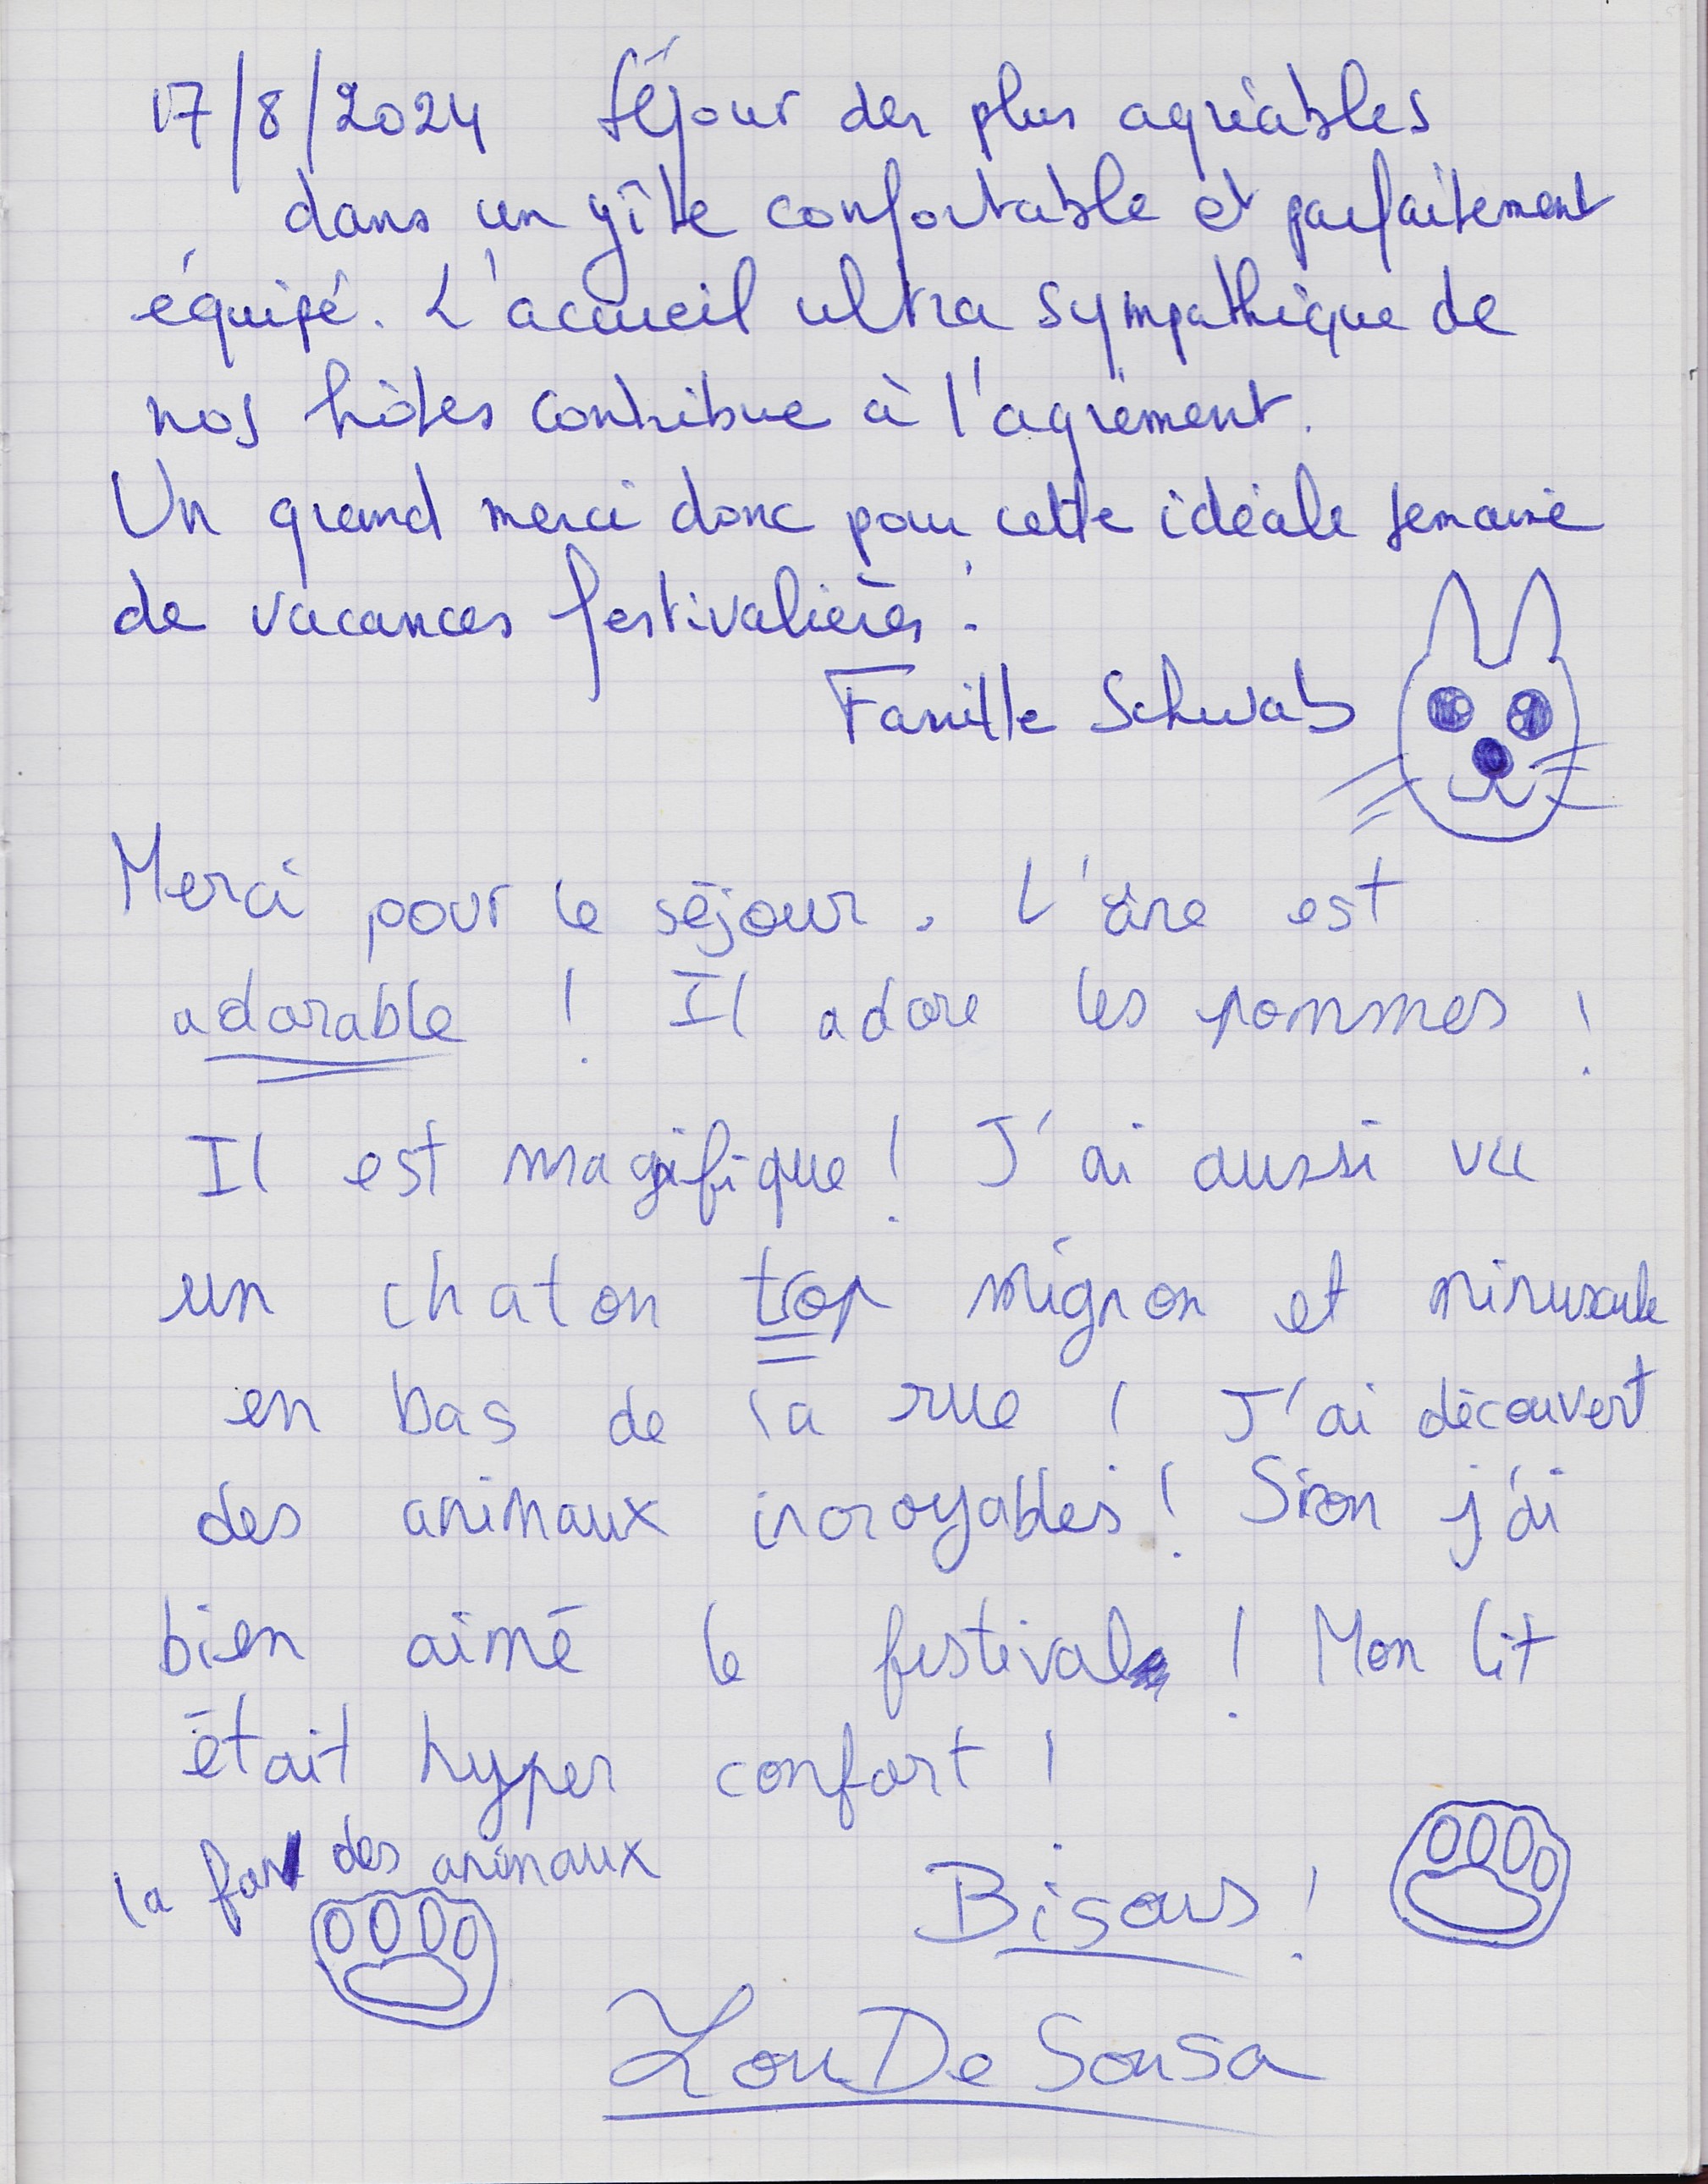 17/8/2024 Séjour des plus agréables
dans un gîte confortable et parfaitement
équipé. L'accueil ultra sympathique de
nos hôtes contribue à l'agrément.
Un grand merci donc pour cette idéale semaine
de vacances festivalières !
Famille Schwab
Merci pour le séjour. L'âne est
adorable ! Il adore les pommes !
Il est magnifique ! J'ai aussi vu
un chaton trop mignon et minuscule
en bas de la rue ! J'ai découvert
des animaux incroyables ! Sinon j'ai
bien aimé le festival ! Mon lit
était hyper confort !
la fan des animaux
Bisous !
Lou De Sousa